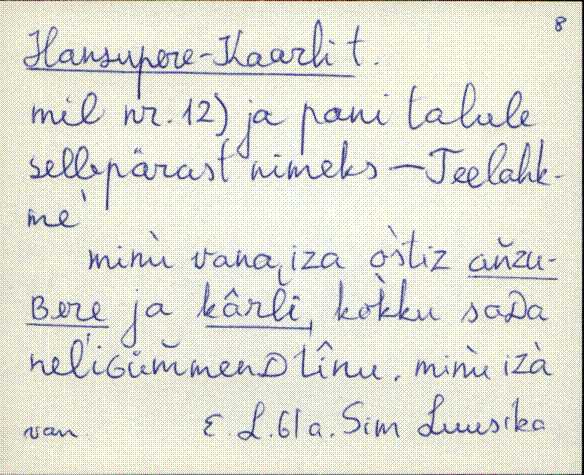 8
Hansupere-Kaarli t.
mil nr. 12) ja pani talule
sellepärast nimeks — Teelahk-
me
minù vana iza òstiz aňzu-
Bere ja kârli, kòkku saDa
neliGüm̆menD tînu. minù izà
van E. L. 61 a. Sim Luusika